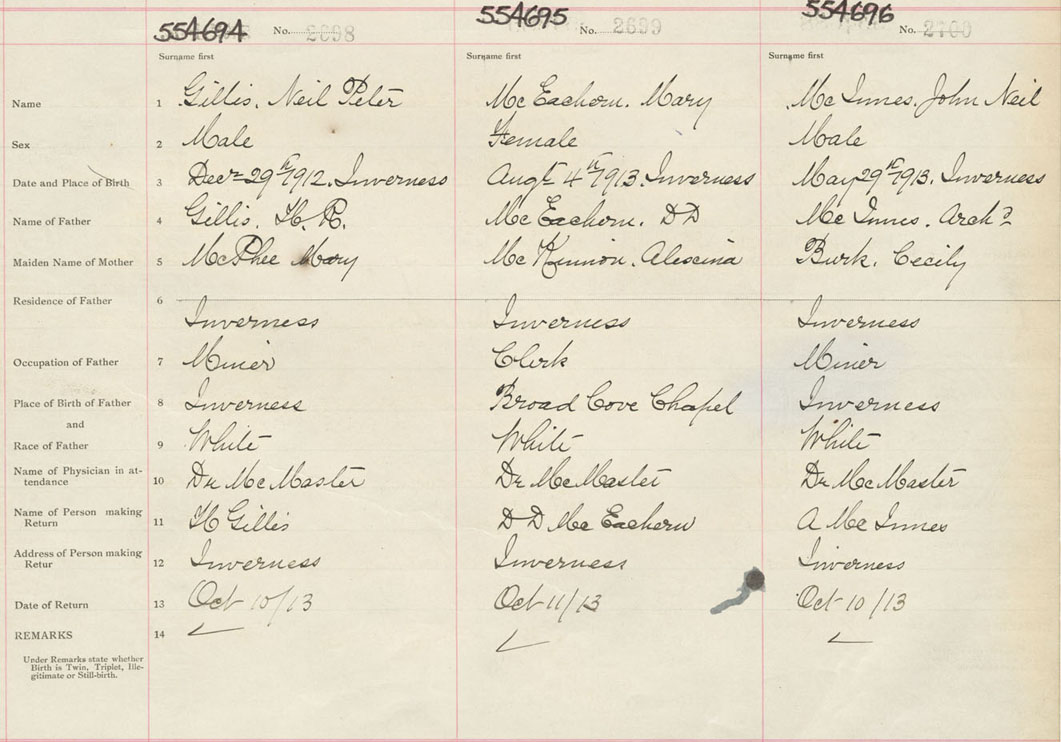 554694 No. 2698 554695 No. 2699 554696 No. 2700
Surname first Surname first Surname first
Name 1 Gillis. Neil Peter Mc Eachern. Mary Mc Innes. John Neil
Sex 2 Male Female Male
Date and Place of Birth 3 Decr 29th 1912. Inverness Augt 4th 1913. Inverness May 29th 1913. Inverness
Name of Father 4 Gillis. H. R. Mc Eachern. D D Mc Innes. Archd
Maiden Name of Mother 5 McPhee Mary Mc Kinnon. Alescina Burk. Cecily
Residence of Father 6
Inverness Inverness Inverness
Occupation of Father 7 Miner Clerk Miner
Place of Birth of Father 8 Inverness Broad Cove Chapel Inverness
and
Race of Father 9 White White White
Name of Physician in at-
tendance 10 Dr McMaster Dr McMaster Dr McMaster
Name of Person making
Return 11 H Gillis D D Mc Eachern A Mc Innes
Address of Person making
Retur 12 Inverness Inverness Inverness
Date of Return 13 Oct 10/13 Oct 11/13 Oct 10/13
REMARKS 14
Under Remarks state whether
Birth is Twin, Triplet, Ille-
gitimate or Still-birth.